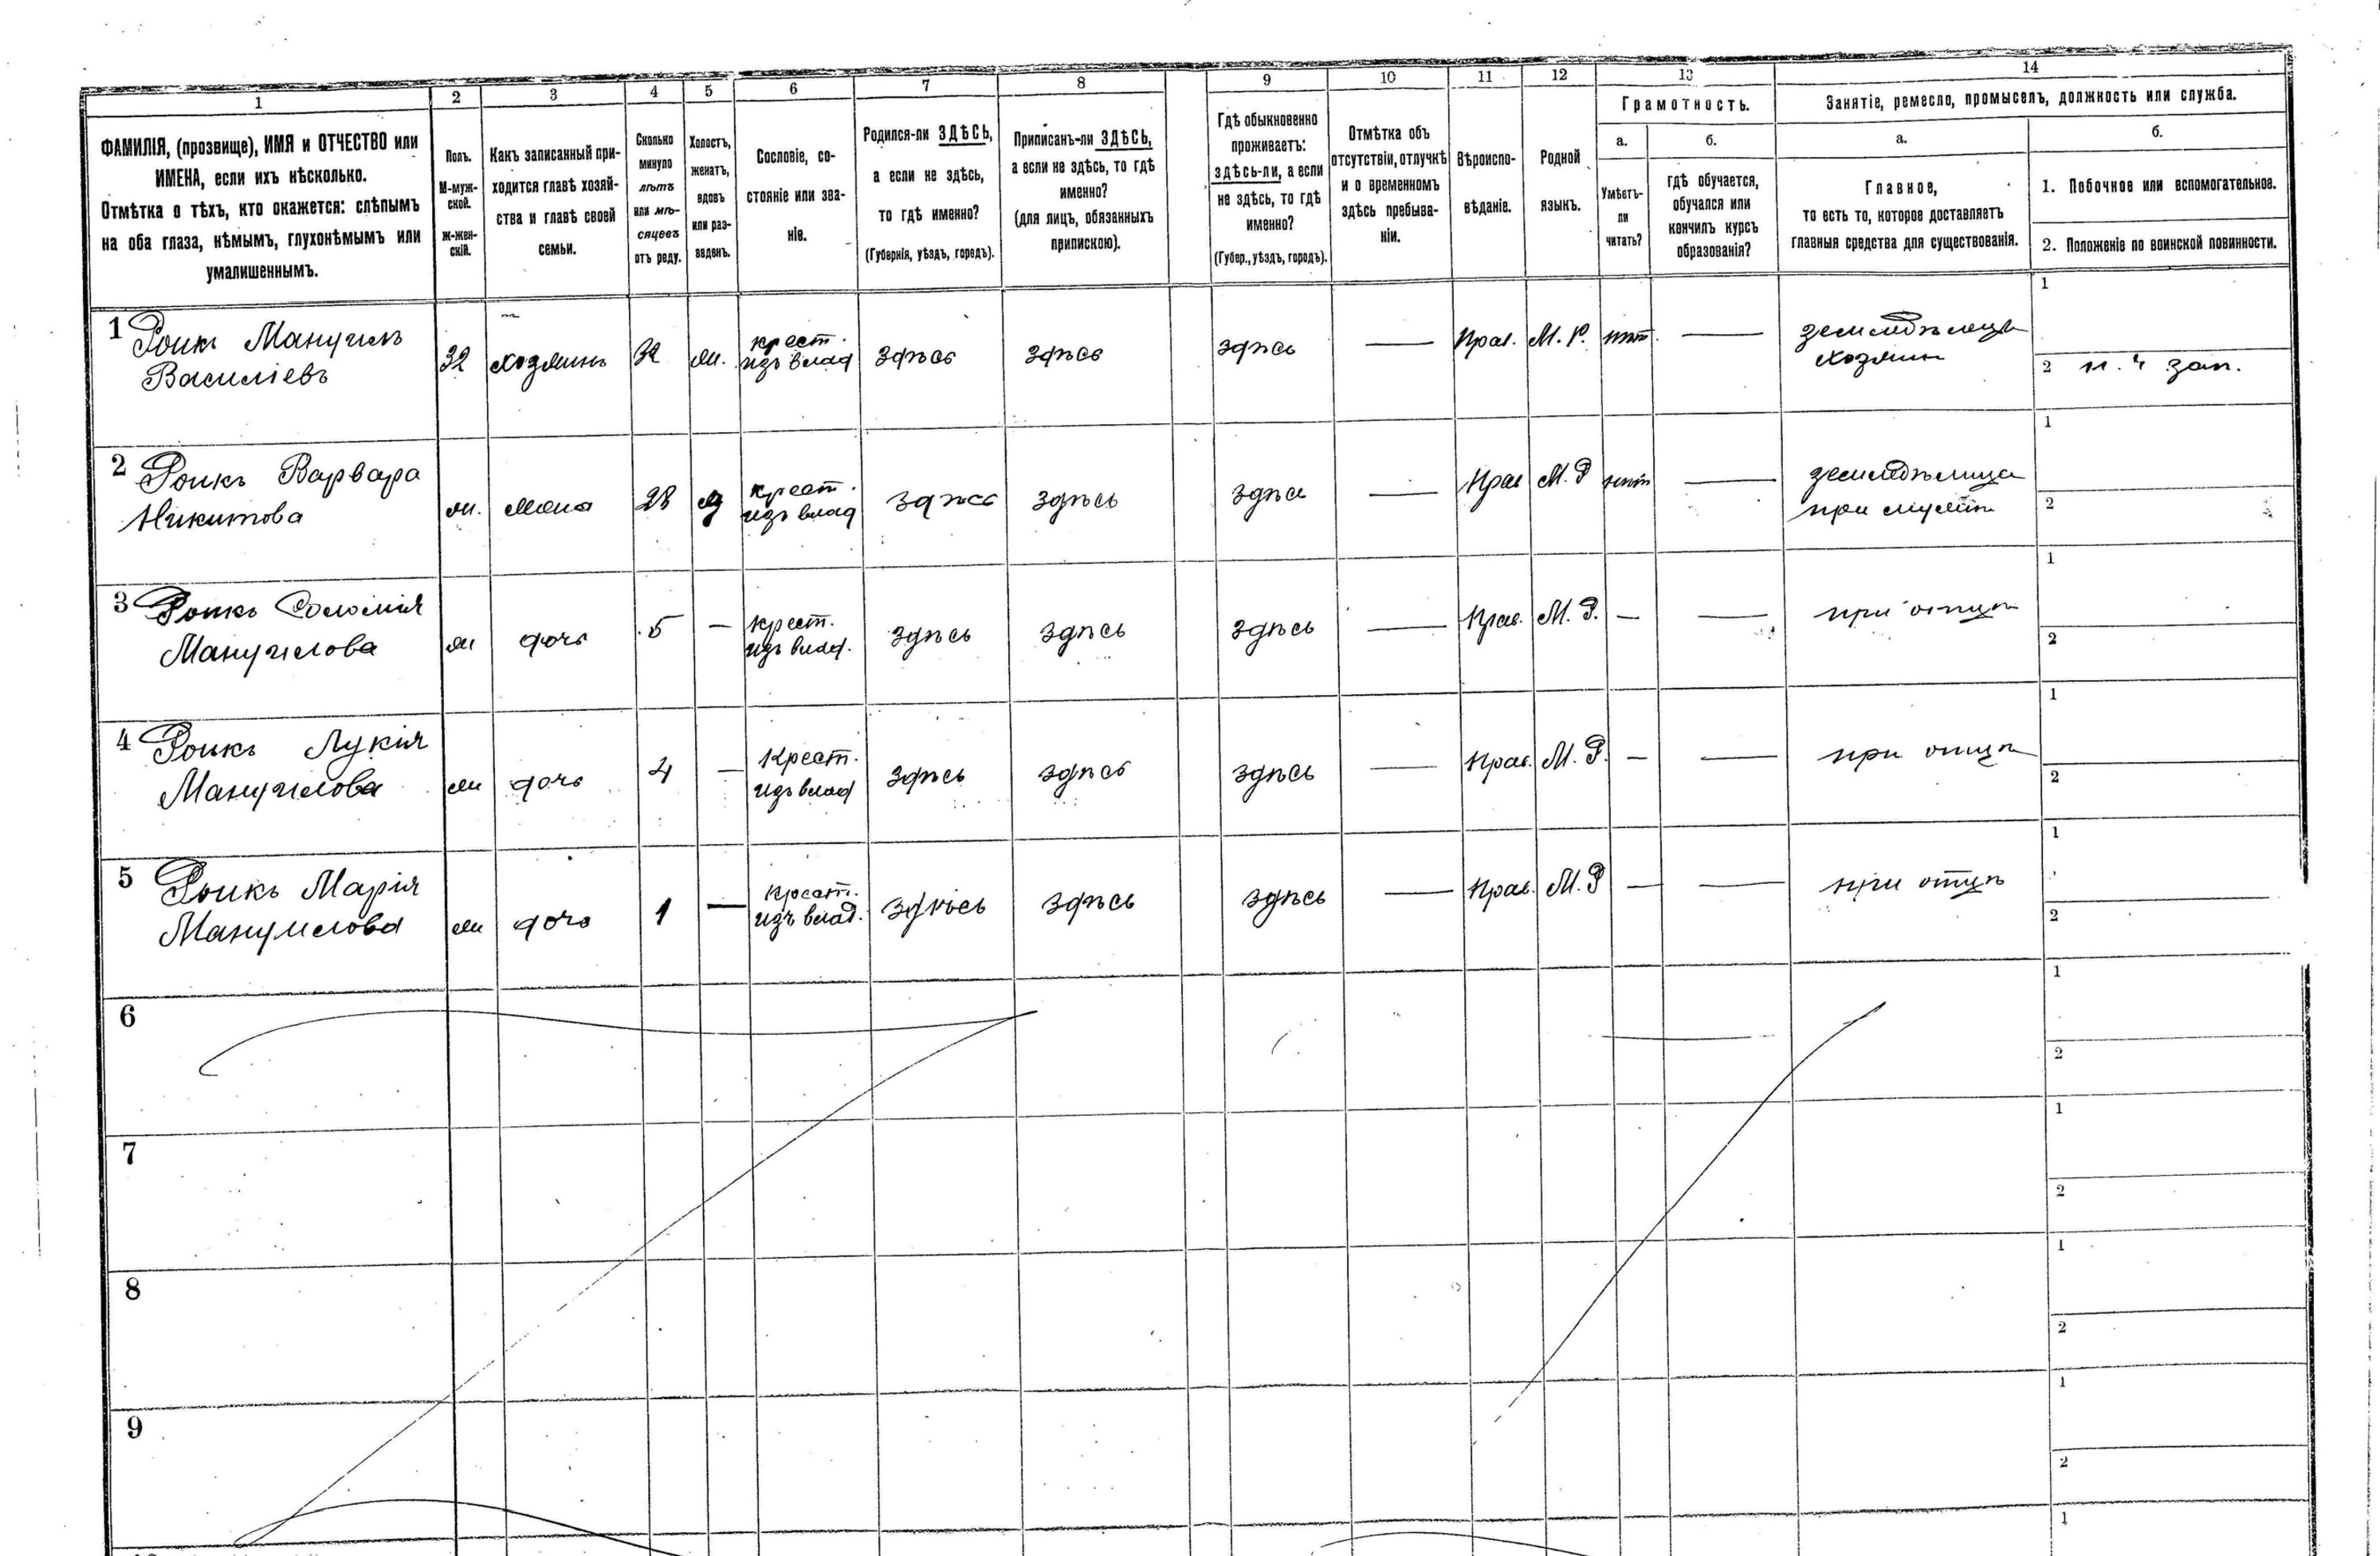 1 2 3 4 5 6 7 8 9 10 11 12 13 14
ФАМИЛІЯ, (прозвище), ИМЯ и ОТЧЕСТВО или
ИМЕНА, если ихъ нѣсколько.
Отмѣтка о тѣхъ, кто окажется: слѣпымъ
на оба глаза, нѣмымъ, глухонѣмымъ или
умалишеннымъ.
Полъ.
М-муж-
ской.
ж-жен-
скій.
Какъ записанный при-
ходится главѣ хозяй-
ства и главѣ своей
семьи.
Сколько
минуло
лѣтъ
или мѣ-
сяцевъ
отъ роду.
Холостъ,
женатъ,
вдовъ
или раз-
веденъ.
Сословіе, со-
стояніе или зва-
ніе.
Родился-ли ЗДѢСЬ,
а если не здѣсь,
то гдѣ именно?
(Губернія, уѣздъ, городъ).
Приписанъ-ли ЗДѢСЬ,
а если не здѣсь, то гдѣ
именно?
(для лицъ, обязанныхъ
припискою).
Гдѣ обыкновенно
проживаетъ:
здѣсь-ли, а если
не здѣсь, то гдѣ
именно?
(Губер., уѣздъ, городъ).
Отмѣтка объ
отсутствіи, отлучкѣ
и о временномъ
здѣсь пребыва-
ніи.
Вѣроиспо-
вѣданіе.
Родной
языкъ.
Грамотность.
а.
Умѣетъ-
ли
читать?
б.
гдѣ обучается,
обучался или
кончилъ курсъ
образованія?
Занятіе, ремесло, промыселъ, должность или служба.
а.
Главное,
то есть то, которое доставляетъ
главныя средства для существованія.
б.
1. Побочное или вспомогательное.
2. Положеніе по воинской повинности.
1 Роикъ Мануилъ
Василіевъ
хозяинъ
32
крест.
изъ влад
здѣсь
здѣсь
здѣсь
—
Прав.
М. Р.
нѣт.
—
земледѣлецъ
хозяин
1
2 зап.
2 Роикъ Варвара
Никитова
жена
28
крест.
изъ влад
здѣсь
здѣсь
здѣсь
—
Прав
М. Р
нѣт
—
земледѣлица
при мужѣ
1
2
3 Роикъ Соломія
Мануилова
ж
дочь
5
—
крест.
изъ влад.
здѣсь
здѣсь
здѣсь
—
Прав.
М. Р.
—
—
при отцѣ
1
2
4 Роикъ Лукія
Мануилова
ж
дочь
4
—
Крест.
изъ влад
здѣсь
здѣсь
здѣсь
—
Прав.
М. Р.
—
—
при отцѣ
1
2
5 Роикъ Марія
Мануилова
ж
дочь
1
—
крест.
изъ влад.
здѣсь
здѣсь
здѣсь
—
Прав.
М. Р
—
—
при отцѣ
1
2
6
1
2
7
1
2
8
1
2
9
1
2
1